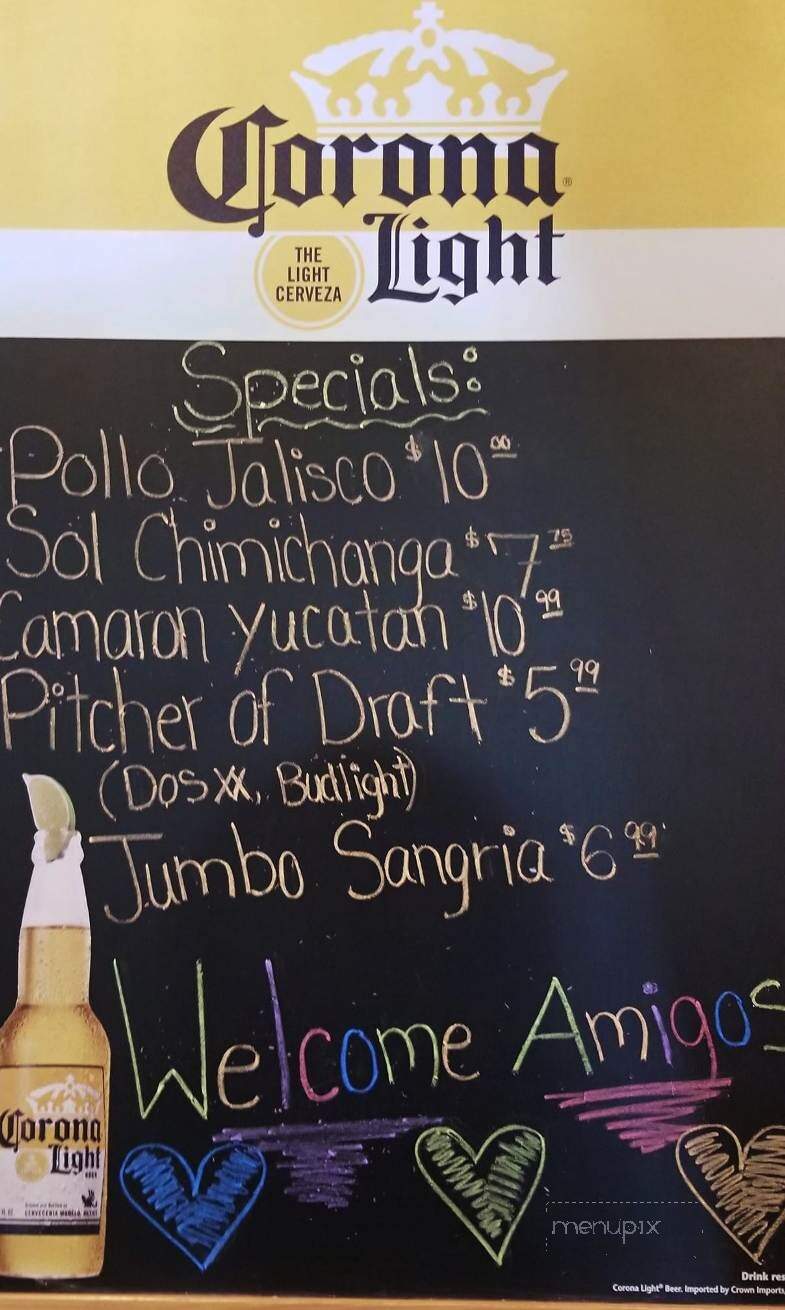 Corona®
Light
THE
LIGHT
CERVEZA
Specials:
Pollo Jalisco $10 00
Sol Chimichanga $7 75
Camaron Yucatan $10 99
Pitcher of Draft $5 99
(Dos XX, Budlight)
Jumbo Sangria $6 99
Welcome Amigos
Corona
Light
BEER
menupix
Drink res
Corona Light® Beer. Imported by Crown Imports